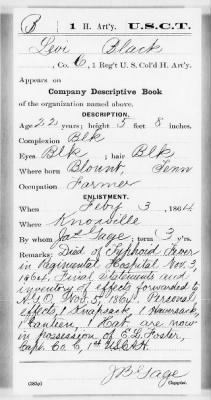 B | 1 H. Art'y. | U.S.C.T.
Levi Black
, Co. C, 1 Reg't U. S. Col'd H. Art'y.
Appears on
Company Descriptive Book
of the organization named above.
DESCRIPTION.
Age 22 years; height 5 feet 8 inches.
Complexion Blk
Eyes Blk ; hair Blk
Where born Blount, Tenn
Occupation Farmer
ENLISTMENT.
When Feby 3, 1864
Where Knoxville
By whom Jas Gage ; term 3 y'rs.
Remarks: Died of Typhoid Fever
in Regimental Hospital Nov. 3,
1864. Final statements and
inventory of effects forwarded to
A.G.O. Nov. 5, 1864. Personal
effects, 1 Knapsack, 1 Haversack,
1 Canteen, 1 Hat, are now
in possession of E. D. Foster,
Capt. Co. C, 1st U.S.C.A.H.
J B Gage
(383g) Copyist.